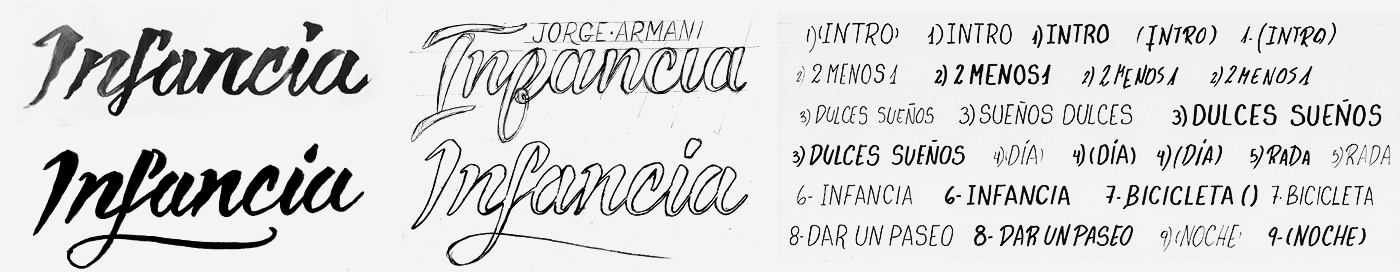 Infancia
Infancia
JORGE·ARMANI
Infancia
Infancia
1)(INTRO) 1)INTRO 1)INTRO (INTRO) 1-(INTRO)
2) 2 MENOS 1 2) 2 MENOS 1 2) 2 MENOS 1 2) 2 MENOS 1
3) DULCES SUEÑOS 3) SUEÑOS DULCES 3) DULCES SUEÑOS
3) DULCES SUEÑOS 4)(DÍA) 4)(DÍA) 4)(DÍA) 5) RADA 5) RADA
6- INFANCIA 6- INFANCIA 7- BICICLETA () 7- BICICLETA
8- DAR UN PASEO 8- DAR UN PASEO 9)(NOCHE) 9-(NOCHE)